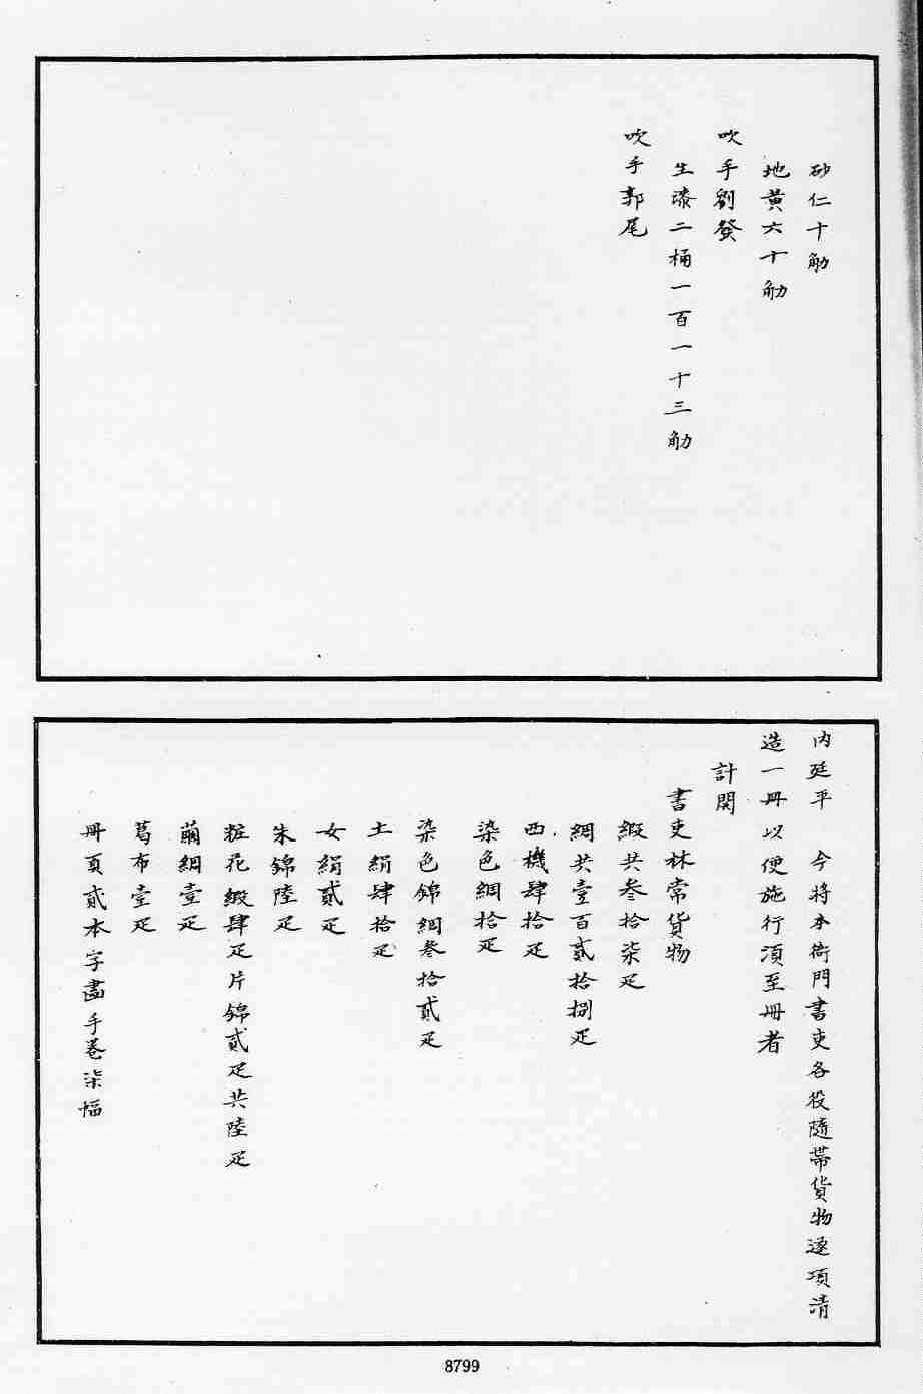 砂仁十觔
地黃六十觔
吹手劉發
生漆二桶一百一十三觔
吹手郭尾
內廷平 今將本衙門書吏各役隨帶貨物逐項清
造一冊以便施行湏至冊者
計開
書吏林常貨物
緞共叁拾柒疋
綢共壹百貳拾捌疋
西機肆拾疋
染色綢拾疋
染色錦綢叁拾貳疋
土絹肆拾疋
女絹貳疋
朱錦陸疋
粧花緞肆疋片錦貳疋共陸疋
繭綢壹疋
葛布壹疋
冊頁貳本字畵手卷柒幅
8799